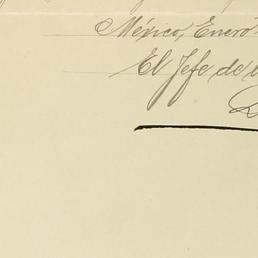 México, Enero
El Jefe de